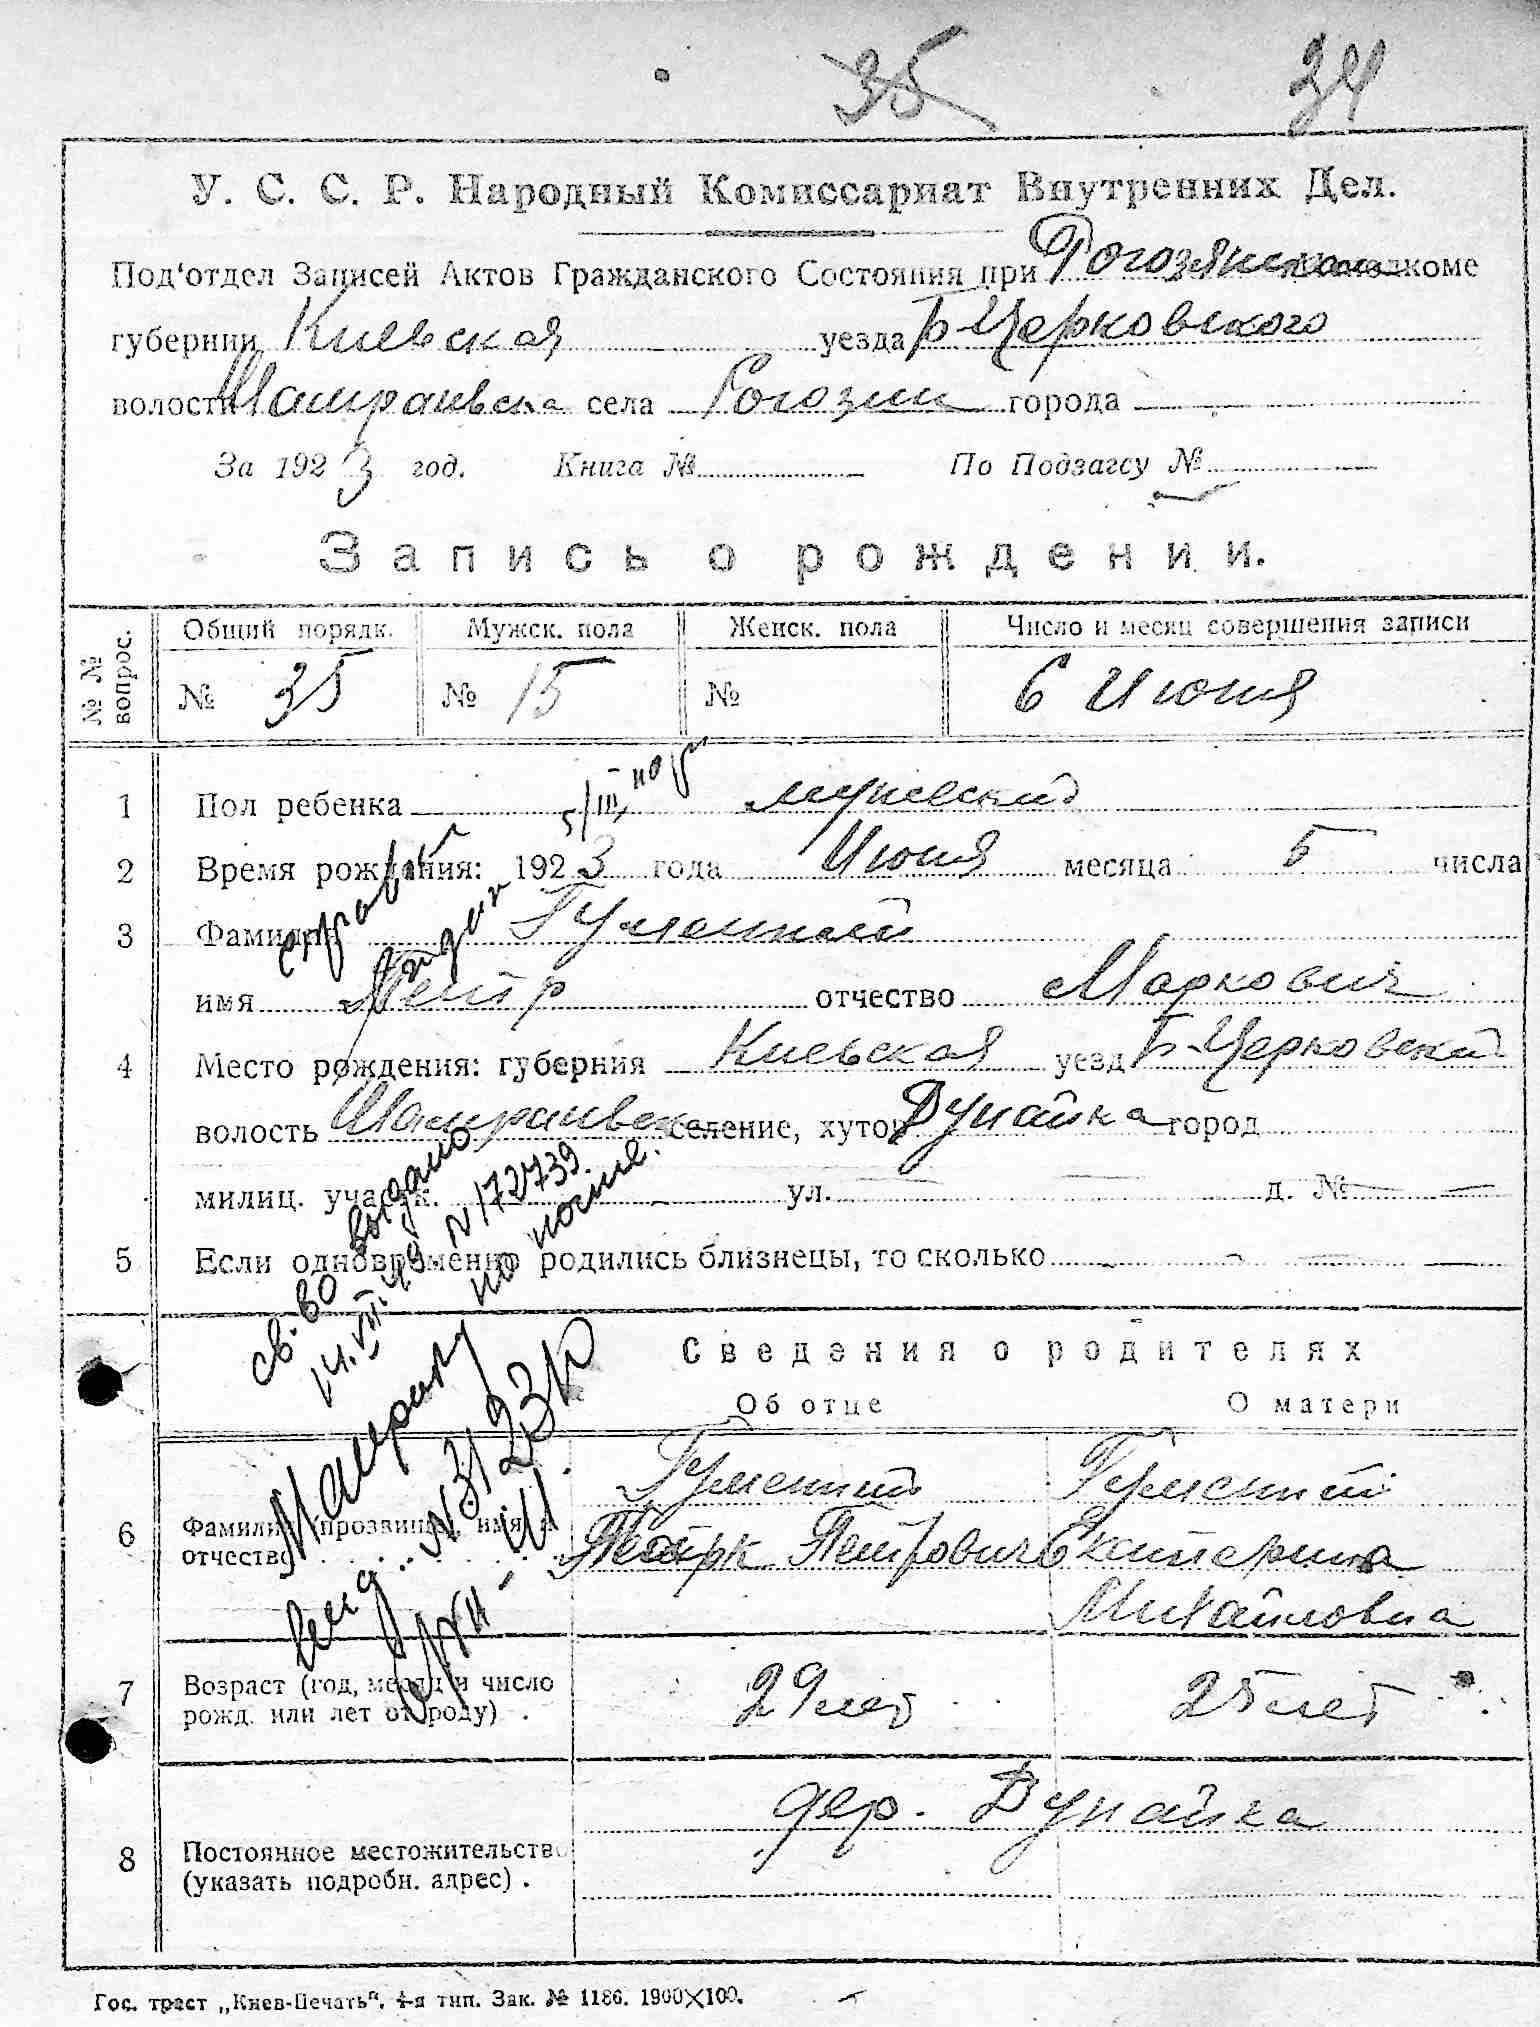 35 34
У. С. С. Р. Народный Комиссариат Внутренних Дел.
Под'отдел Записей Актов Гражданского Состояния при Рогозянском
губернии Киевская уезда Б-Церковского
волости Шамраивска села Рогозни города
За 1923 год. Книга № По Подзагсу №
Запись о рождении.
№ № вопрос. Общий порядк. Мужск. пола Женск. пола Число и месяц совершения записи
№ 35 № 15 № 6 Июня
1 Пол ребенка мужеский
2 Время рождения: 1923 года Июня месяца 5 числа
3 Фамилия Гуменный
имя Петр отчество Маркович
4 Место рождения: губерния Киевская уезд Б-Церковский
волость Шамраивск селение, хутор Дунайка город
милиц. участк. ул. д. №
5 Если одновременно родились близнецы, то сколько
св-во выдано
14.VIII.49 N 172739.
N 3123
Сведения о родителях
Об отце О матери
Гуменний Гуменний
6 Фамилия (прозвище), имя и отчество Петрович Екатерина
Михайловна
7 Возраст (год, месяц и число рожд. или лет от роду) . 29 лет 25 лет
дер. Дунайка
8 Постоянное местожительство (указать подробн. адрес) .
Гос. трест „Киев-Печать", 4-я тип. Зак. № 1186. 1900×100.